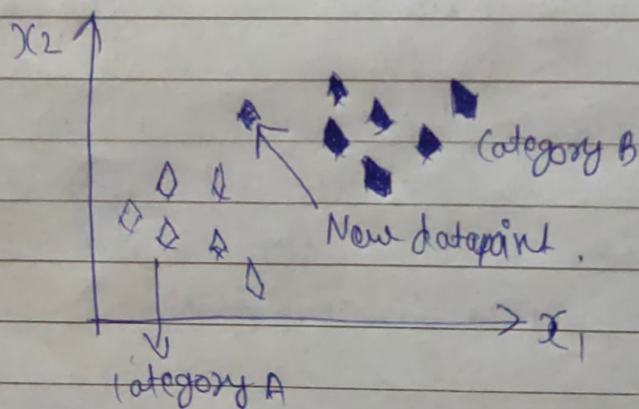 x2
Category B
New datapoint.
x1
Category A